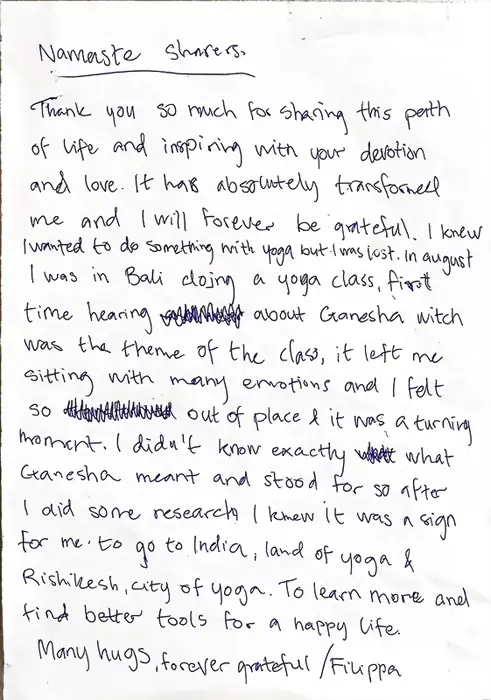 Namaste sharers.
Thank you so much for sharing this path
of life and inspiring with your devotion
and love. It has absolutely transformed
me and I will forever be grateful. I knew
I wanted to do something with yoga but I was lost. In august
I was in Bali doing a yoga class, first
time hearing about Ganesha witch
was the theme of the class, it left me
sitting with many emotions and I felt
so out of place & it was a turning
moment. I didn't know exactly what
Ganesha meant and stood for so after
I did some research I knew it was a sign
for me to go to India, land of yoga &
Rishikesh, city of yoga. To learn more and
find better tools for a happy life.
Many hugs, forever grateful /Filippa